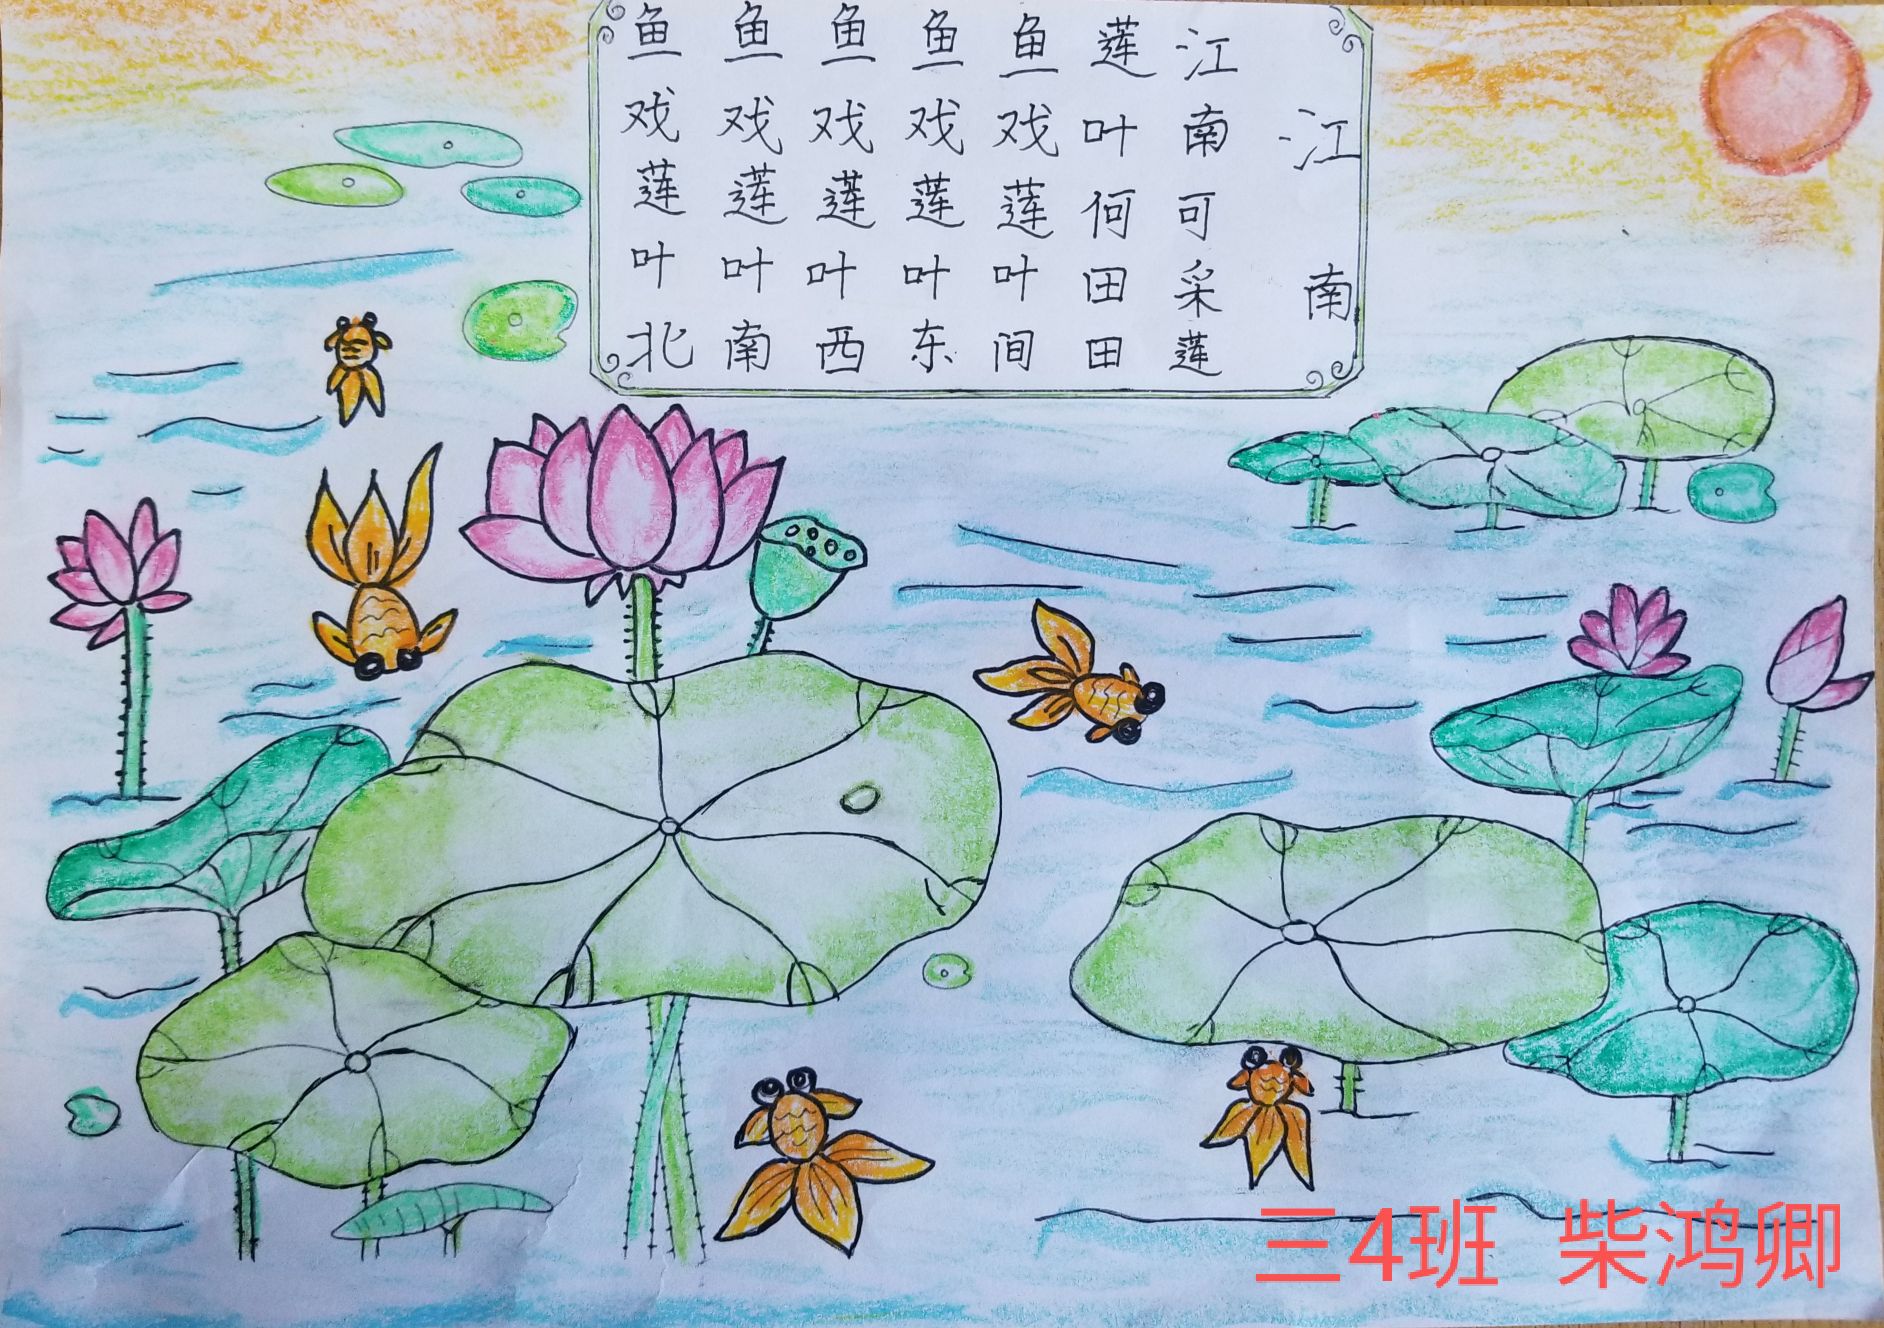 江南
江南可采莲
莲叶何田田
鱼戏莲叶间
鱼戏莲叶东
鱼戏莲叶西
鱼戏莲叶南
鱼戏莲叶北
三4班 柴鸿卿